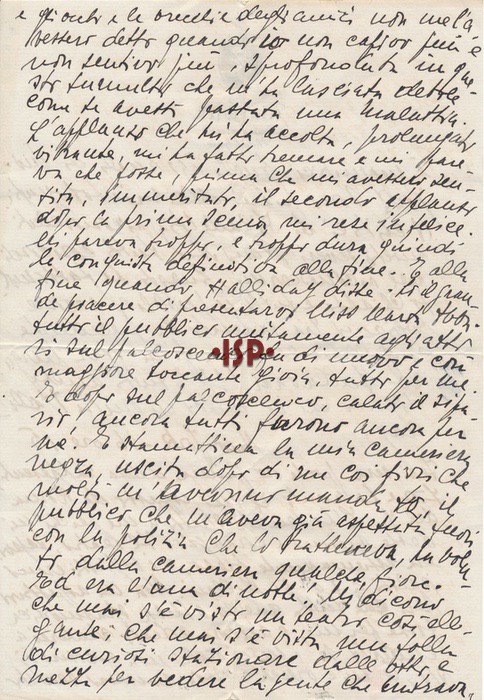 e gli occhi e le orecchie degli amici non me l'a
vessero detto quando io non capivo più e
non sentivo più, sprofondata in que
sto tumulto che m'ha lasciata debole
come se avessi passata una malattia.
L'applauso che mi ha accolta, prolungato
vibrante, mi ha fatto tremare e mi pare
va che fosse, prima che mi avessero sen
tita, immeritato, il secondo applauso
dopo la prima scena mi rese infelice.
Mi pareva troppo, e troppo dura quindi
la conquista definitiva alla fine. E alla
fine quando Halliday disse: Ho il gran
de piacere di presentarvi Miss Marta Abba
tutto il pubblico unitamente agli atto
ri sul palcoscenico di nuovo e con
maggiore toccante gioia, tutto per me
E dopo sul palcoscenico, calato il sipa
rio, ancora tutti furono ancora per
me. E stamattina la mia cameriera
negra, uscita dopo di me coi fiori che
molti m'avevano mandato, il
pubblico che m'aveva già aspettata fuori
con la polizia che lo tratteneva, ha volu
to dalla cameriera qualche fiore.
Ed era l'una di notte! Mi dicono
che mai s'è visto un teatro così ele
gante; che mai s'è vista una folla
di curiosi stazionare dalle otto e
mezza per vedere la gente che entrava,
·ISP·